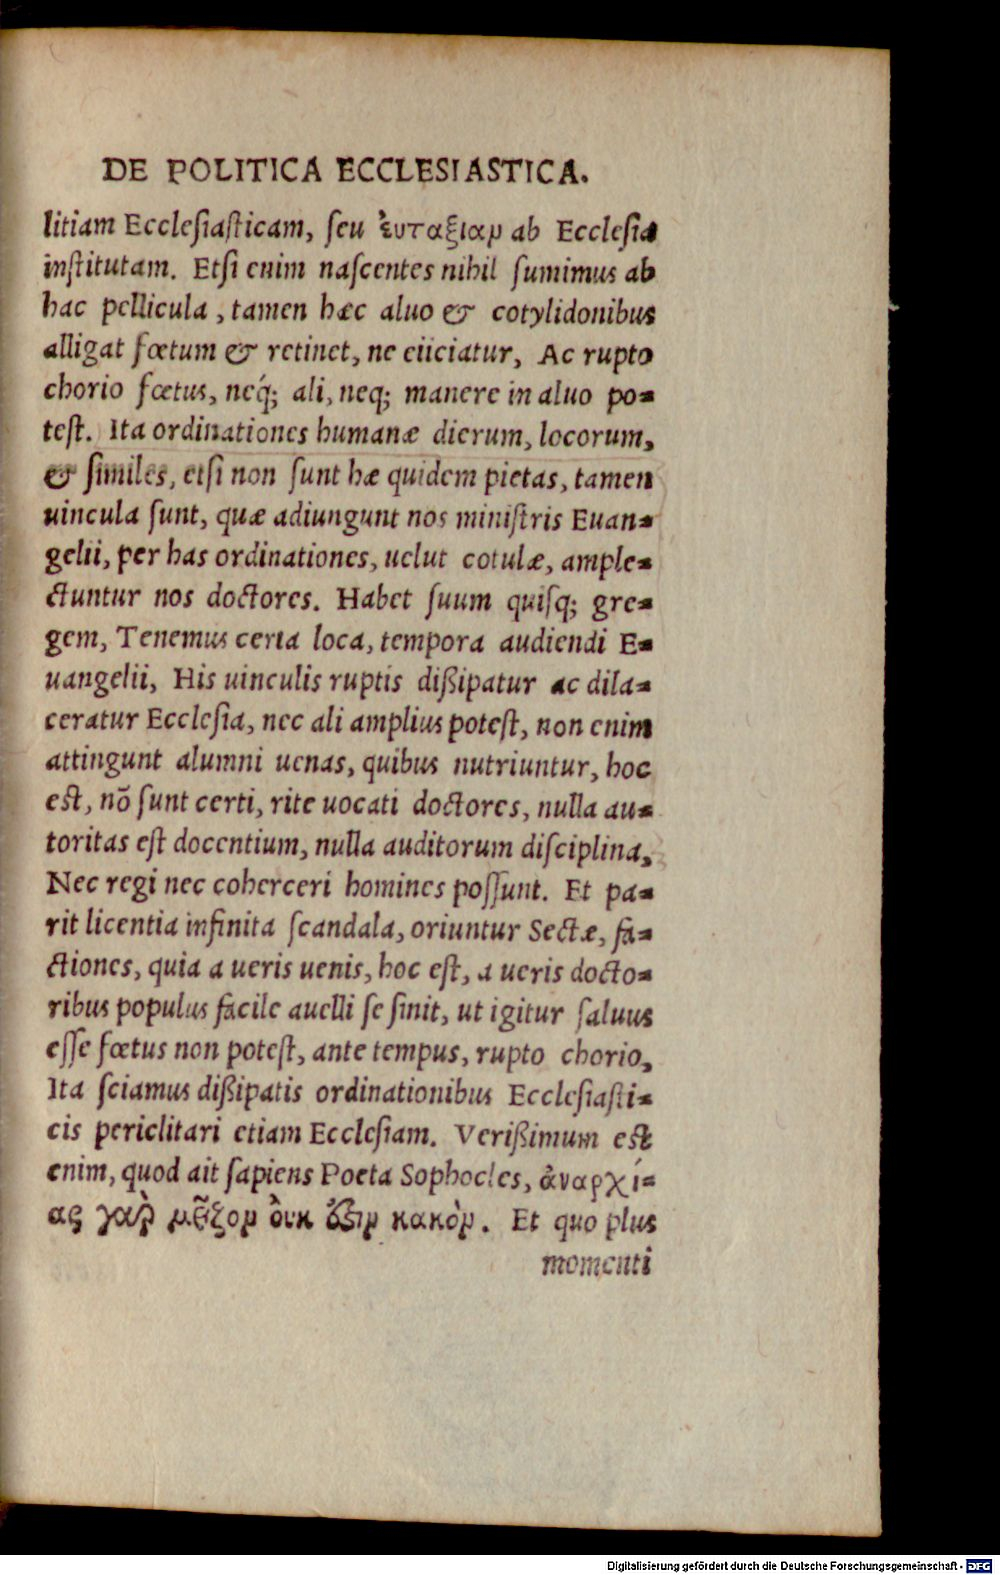 DE POLITICA ECCLESIASTICA.
litiam Ecclesiasticam, seu ἐυταξιαν ab Ecclesia
institutam. Etsi enim nascentes nihil sumimus ab
hac pellicula, tamen hæc aluo & cotylidonibus
alligat fœtum & retinet, ne eiiciatur, Ac rupto
chorio fœtus, neq́; ali, neq; manere in aluo po-
test. Ita ordinationes humanæ dierum, locorum,
& similes, etsi non sunt hæ quidem pietas, tamen
uincula sunt, quæ adiungunt nos ministris Euan-
gelii, per has ordinationes, uelut cotulæ, ample-
ctuntur nos doctores. Habet suum quisq; gre-
gem, Tenemus certa loca, tempora audiendi E-
uangelii, His uinculis ruptis dißipatur ac dila-
ceratur Ecclesia, nec ali amplius potest, non enim
attingunt alumni uenas, quibus nutriuntur, hoc
est, nō sunt certi, rite uocati doctores, nulla au-
toritas est docentium, nulla auditorum disciplina,
Nec regi nec coherceri homines possunt. Et pa-
rit licentia infinita scandala, oriuntur Sectæ, fa-
ctiones, quia a ueris uenis, hoc est, a ueris docto-
ribus populus facile auelli se sinit, ut igitur saluus
esse fœtus non potest, ante tempus, rupto chorio,
Ita sciamus dißipatis ordinationibus Ecclesiasti-
cis periclitari etiam Ecclesiam. Verißimum est
enim, quod ait sapiens Poeta Sophocles, ἀναρχί-
ας γὰρ μεῖζον ὀυκ ἔστιν κακὸν. Et quo plus
momenti
Digitalisierung gefördert durch die Deutsche Forschungsgemeinschaft - DFG